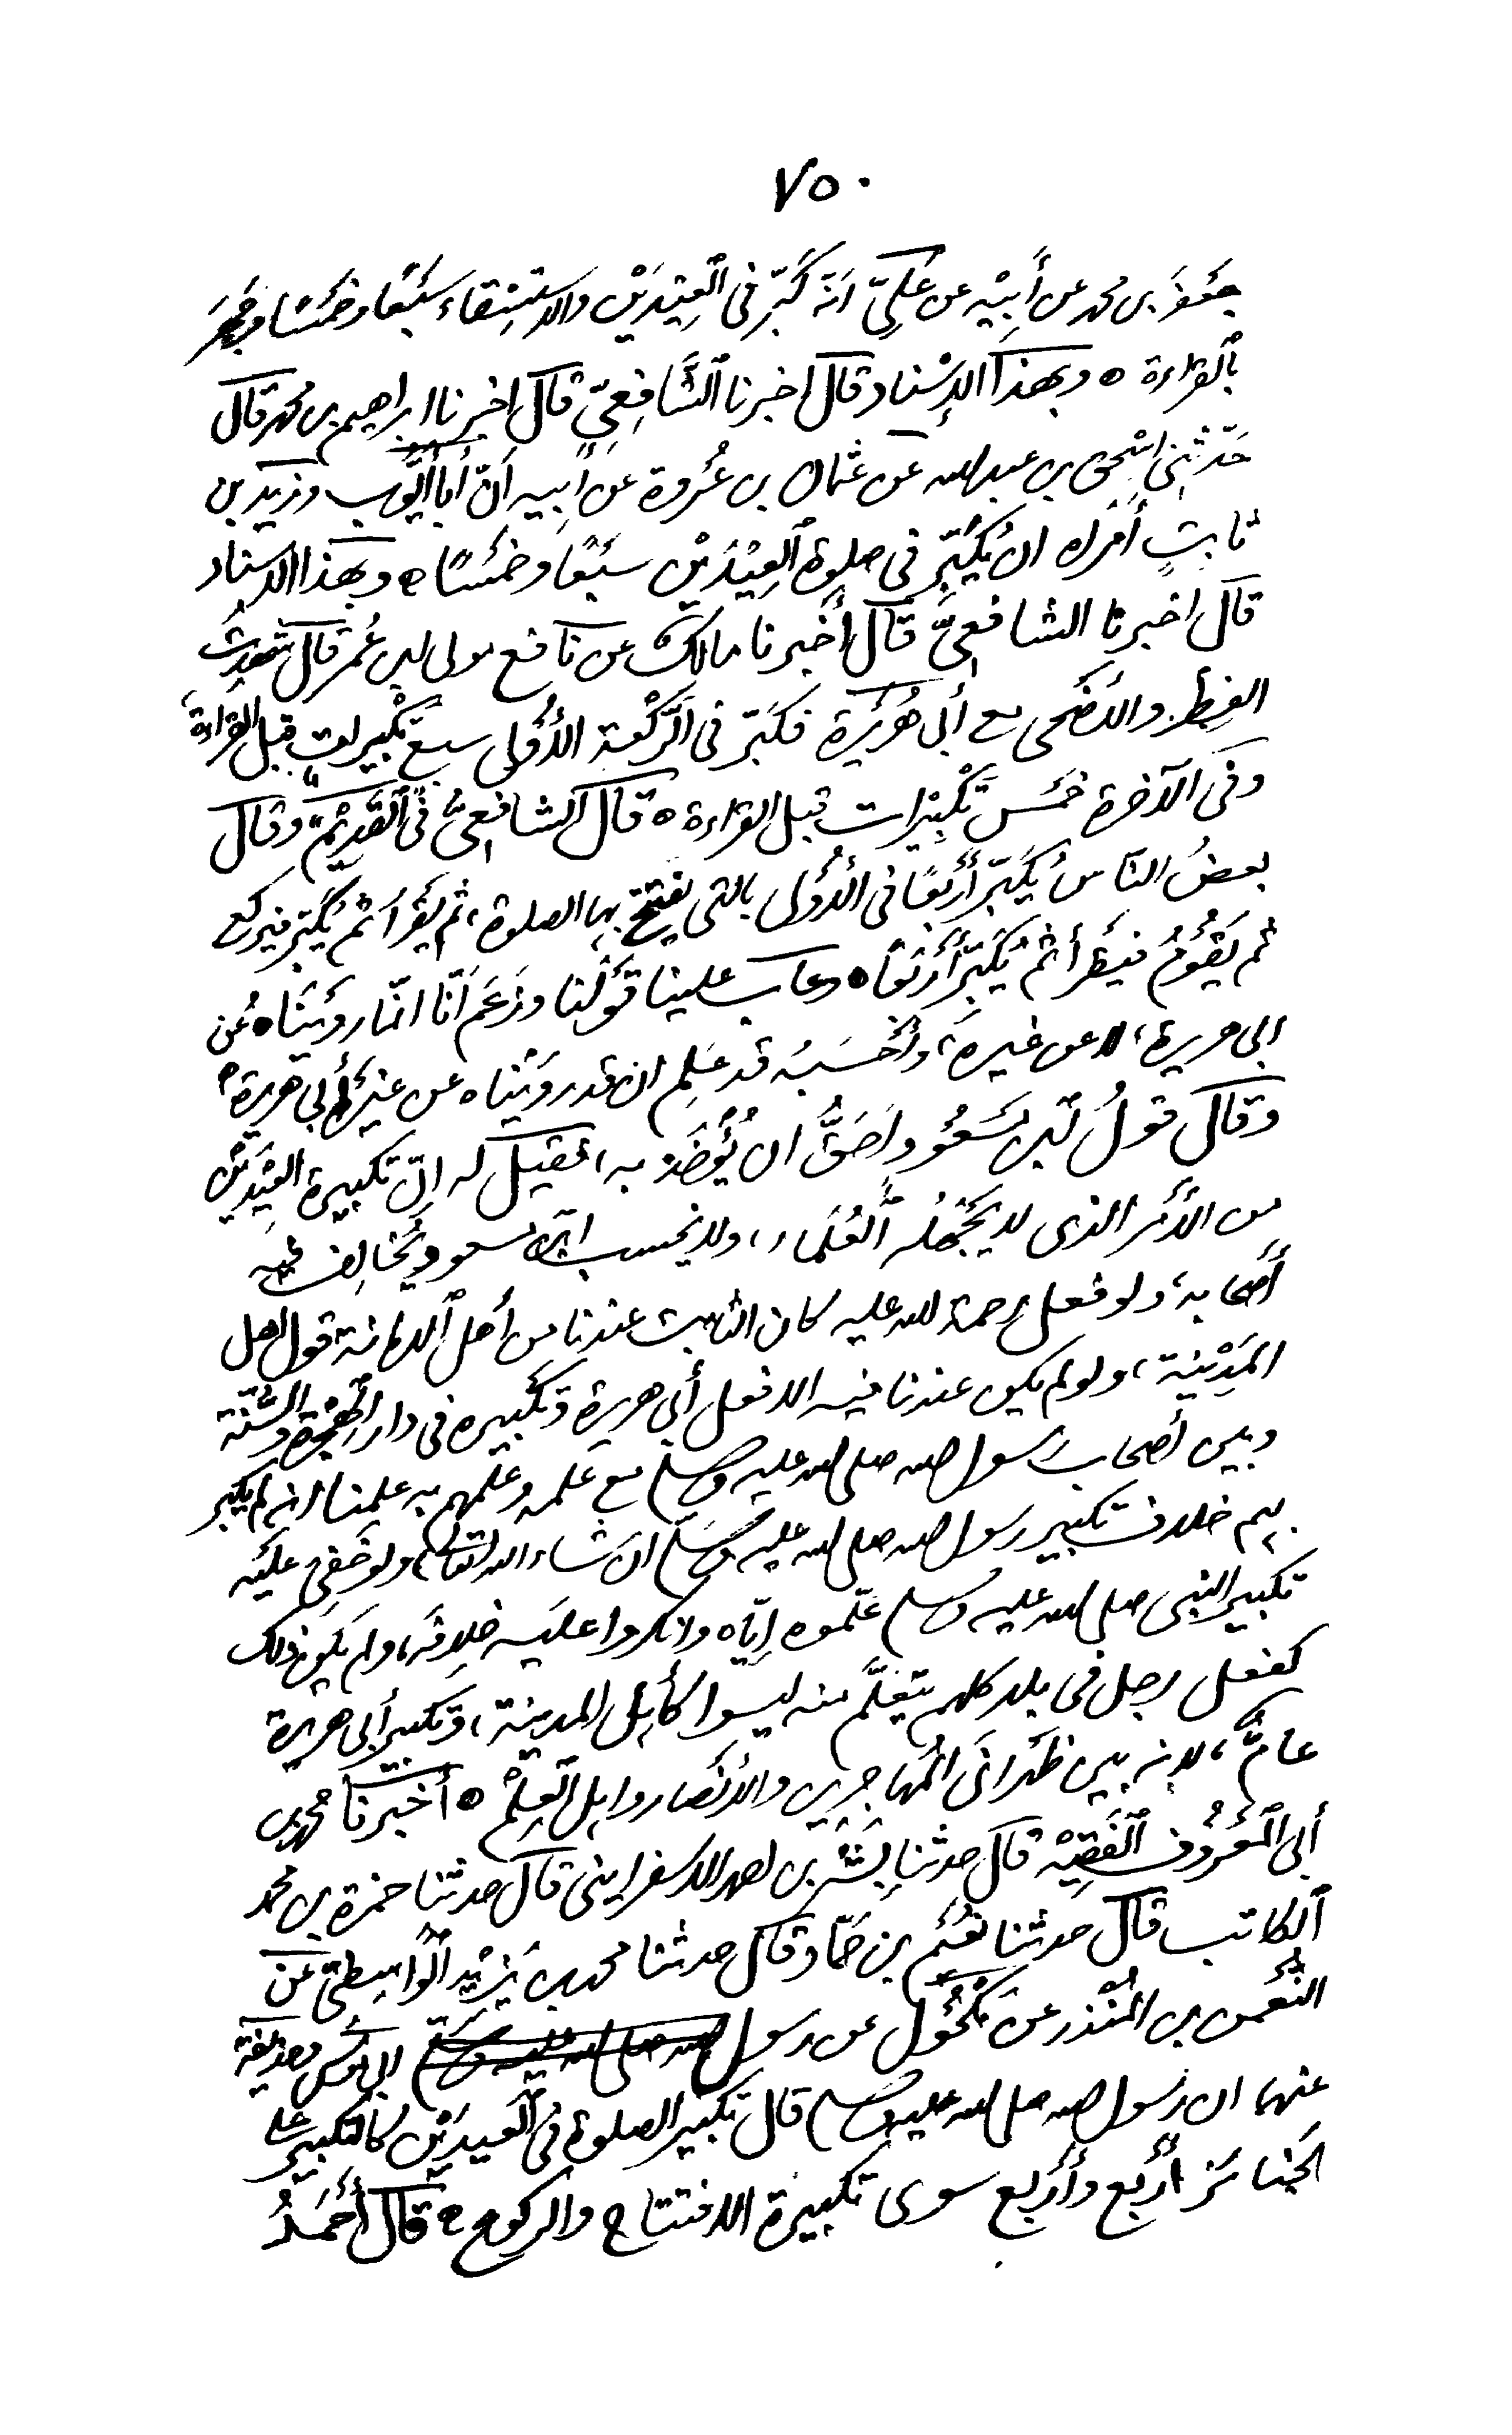 ٧٥٠
جعفر بن محمد عن أبيه عن عليّ انه كبّر فى العيدين والاستسقاء سبعًا وخمسًا وجهر
بالقراءة ٥ وبهذا الإسناد قال اخبرنا الشافعيّ قال اخبرنا ابراهيم بن محمد قال
حدّثنى اسحق بن عبد الله عن عثمان بن عُروة عن أبيه أنّ أبا أيّوب وزيد بن
ثابتٍ أمراه ان يُكبّر فى صلوة العِيْدَيْن سَبْعًا وخَمْسًا ٥ وبهذا الاسناد
قال اخبرنا الشافعيّ قال أخبرنا مالك عن نافع مولى ابن عُمر قال شهدتُ
الفِطر والأضحى مع أبى هُرَيْرَة فكبّر فى الرّكْعة الأُوْلى سبع تكبيرات قبل القراءة،
وفى الآخرة خمْس تكْبِيْرات قبل القراءة ٥ قال الشافعيّ فى القَدِيْم، وقال
بعضُ النّاس يُكبّر أَرْبعًا فى الأُوْلى بالتى يفتتح بها الصلوة، ثم يَقْرأ ثم يُكبّر فيركع
ثم يَقُوْمُ فيقرأ ثم يُكبّر أَرْبَعًا ٥ وعاب علينا قَوْلَنا وزَعَم أنّا انّما روَيْنَاه عن
ابى هريرة، لا عن غيره، وأَحْسَبُه قد عَلِم ان قد روَيْناه عن غير أبى هريرة،
وقال قولُ ابن مَسْعُوْد أَحَقُّ ان يُؤْخَذ به، فقيل له انّ تكبيرة العِيْدَيْن
من الأَمْر الذى لا يَجْهَلُه العُلَماء، ولا نحسب ابن مسعود يُخالِف فيه
أصْحابه، ولو فعل رحمة الله عليه كان الثابت عندنا من أهل الامانة قول اهل
المَدِيْنة، ولو لم يكن عندنا فيه الا فعل أبى هريرة وتَكْبيره فى دار الهِجْرة والسُّنّة
وبين أصحاب رسول الله صلى الله عليه وسلم مع علمه وعلمهم به علمنا انه لم يكبر
بهم خلاف تكبير رسول الله صلى الله عليه وسلّم ان شاء الله تعالى، ولو خَفِىَ عليه
تكبير النبى صلى الله عليه وسلم علّموه إيّاه وانكروا عليه خِلافَه، ولم يكن ذلك
كفعل رجل فى بلد كلهم يتعلّم منه ليسوا كأهل المدينة، وتكبير أبى هريرة
عامٌّ، لانه بين ظَهْرانَى المُهَاجِرين والأَنْصار واهل العِلْم ٥ أخبرنا محمد بن
أبى المَعْرُوف الفَقِيْه قال حدثنا بِشْر بن احمد الاسفراينى قال حدثنا حمزة بن محمد
الكاتب قال حدثنا نُعَيْم بن حمّاد قال حدثنا محمد بن يَزِيْد الواسِطىّ عن
النُّعْمن بن المُنْذر عن مَكْحُوْل عن رسول الله صلى الله عليه وسلم ابى موسى وحذيفة
عنهما ان رسول الله صلى الله عليه وسلم قال تكبير الصلوة فى العيدَيْن كالتكبير على
الجَنائز أَرْبع وأَرْبع سوى تكبيرة الافتتاح والركوع ٥ قال أَحْمَدُ